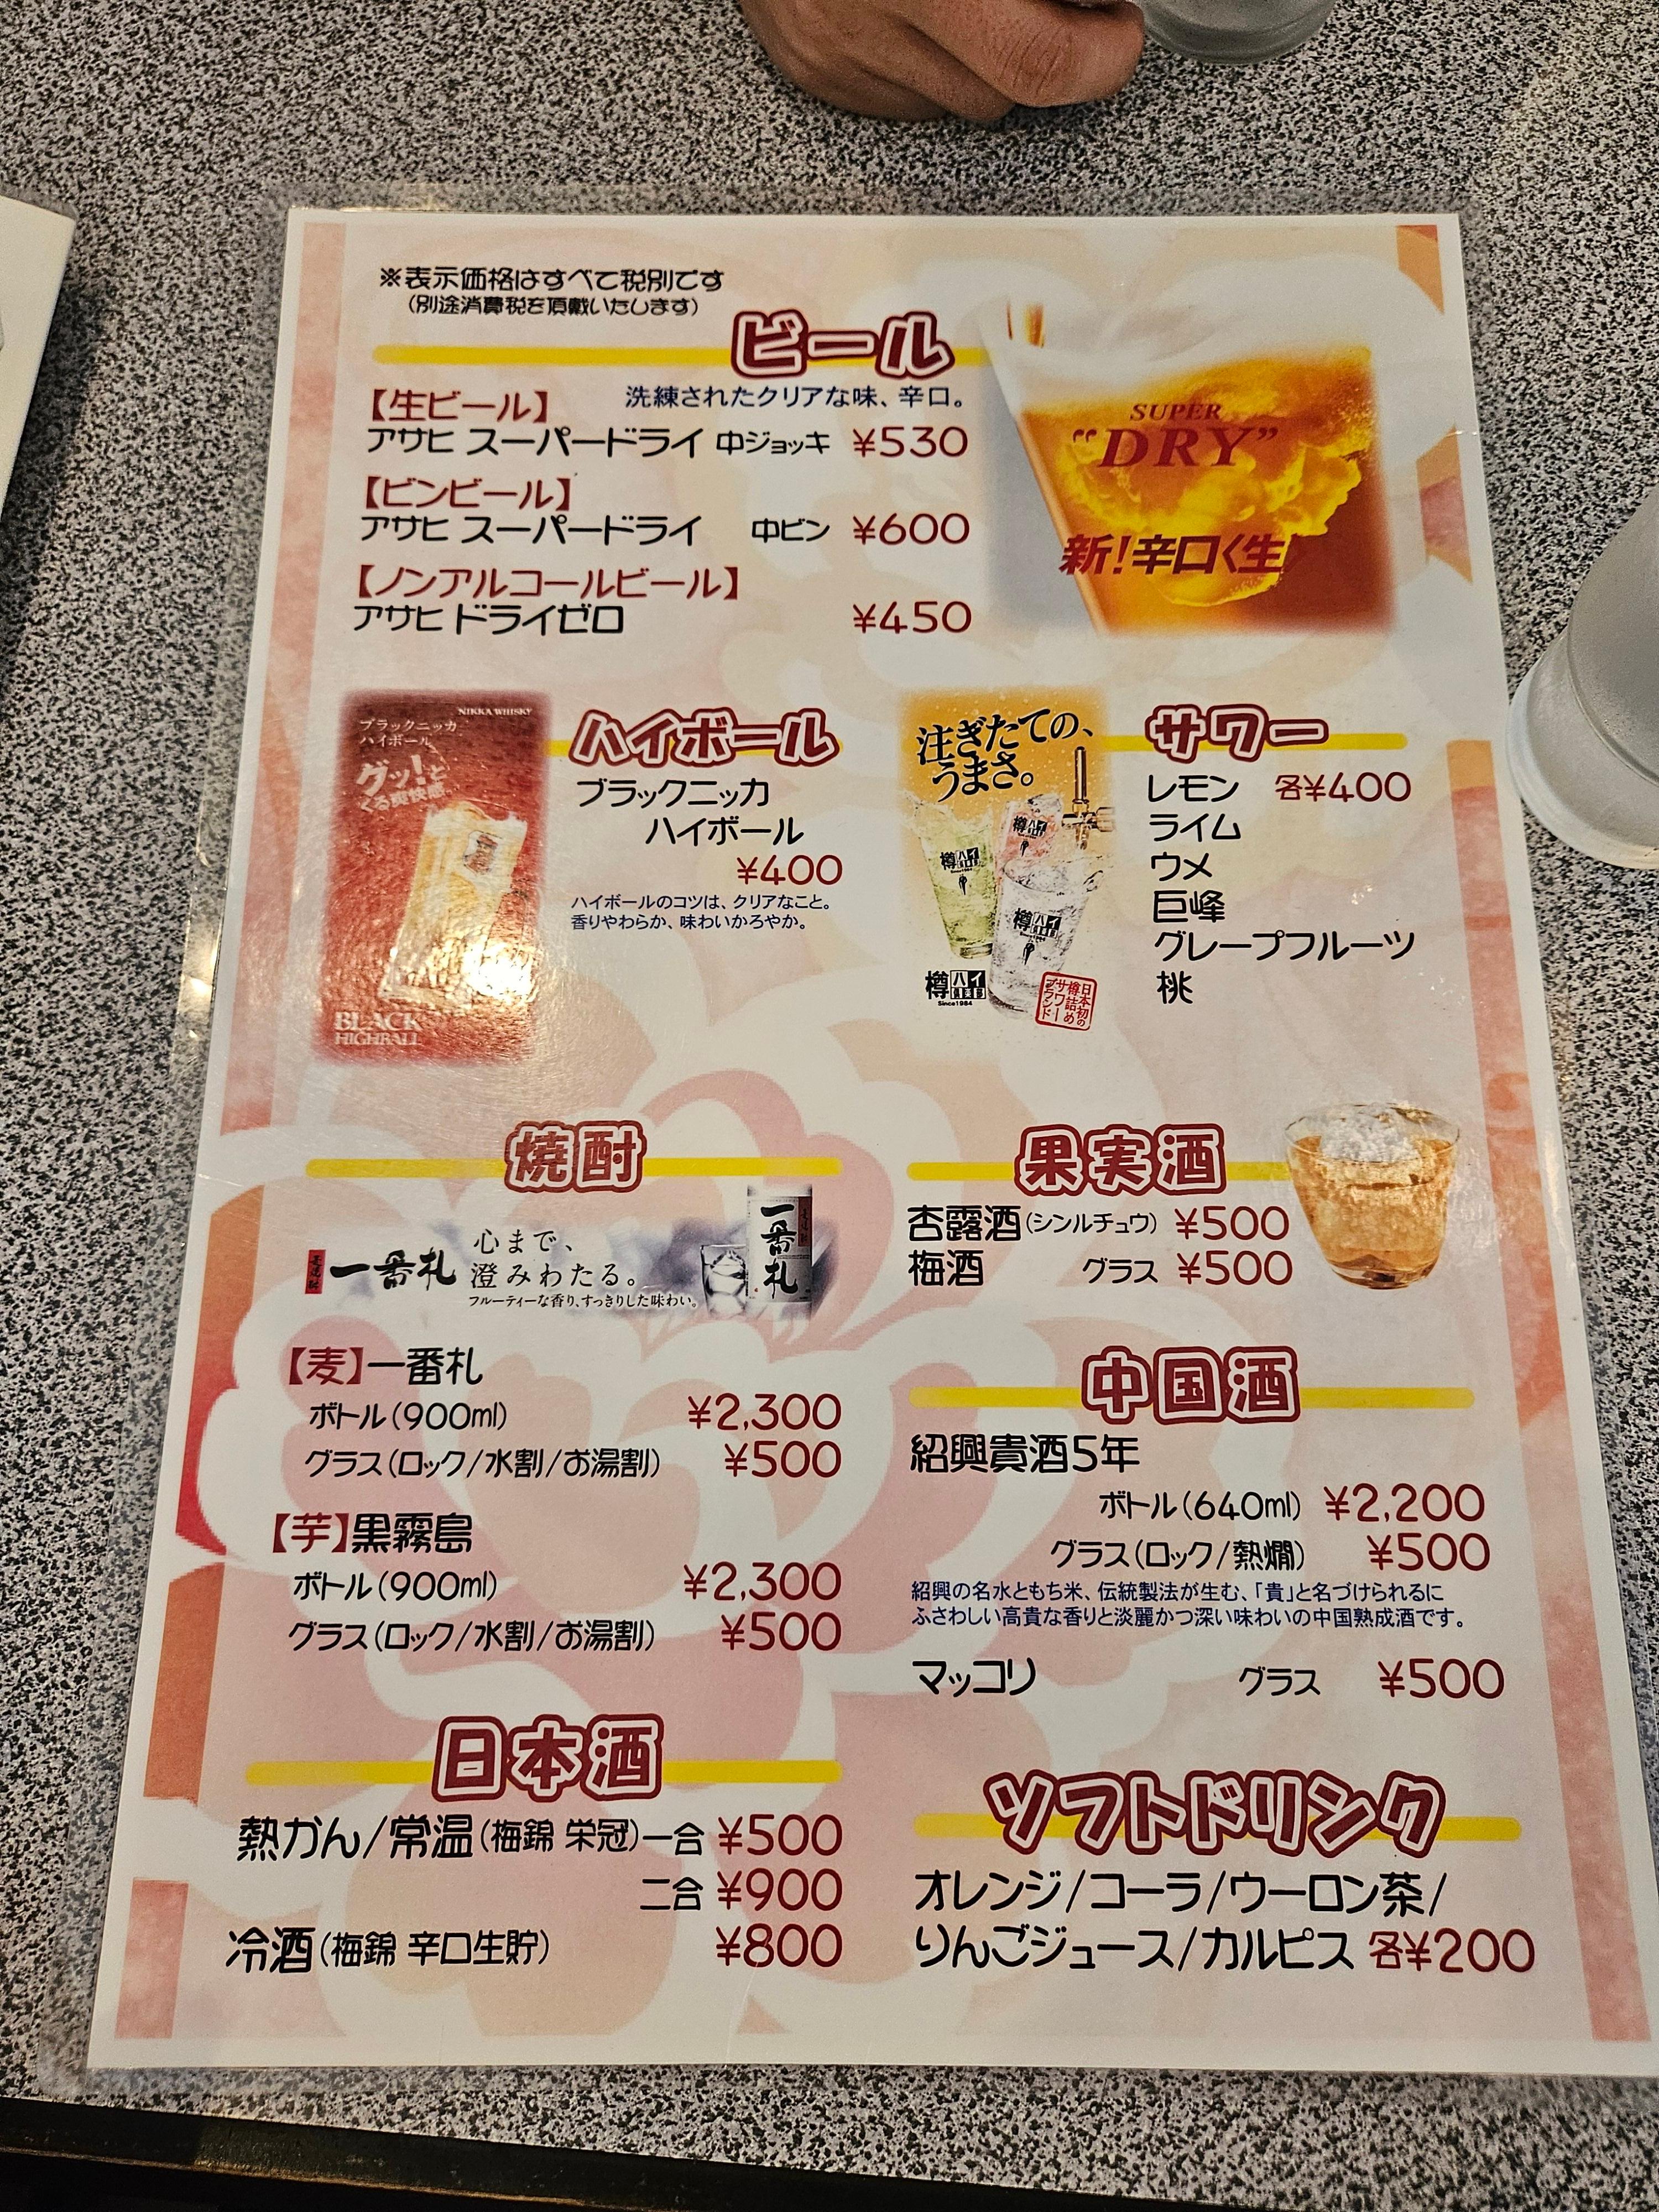 ※表示価格はすべて税別です
(別途消費税を頂戴いたします)
ビール
【生ビール】 洗練されたクリアな味、辛口。
アサヒ スーパードライ 中ジョッキ ¥530
【ビンビール】
アサヒ スーパードライ 中ビン ¥600
【ノンアルコールビール】
アサヒ ドライゼロ ¥450
SUPER
"DRY"
新!辛口〈生
NIKKA WHISKY
ブラックニッカ
ハイボール
グッ!と
くる爽快感。
BLACK
HIGHBALL
ハイボール
ブラックニッカ
ハイボール
¥400
ハイボールのコツは、クリアなこと。
香りやわらか、味わいかろやか。
注ぎたての、
うまさ。
樽ハイ
樽ハイ
樽ハイ
樽ハイ倶楽部
Since1984
日本初の
樽詰め
サワー
ブランド
サワー
レモン 各¥400
ライム
ウメ
巨峰
グレープフルーツ
桃
焼酎
一番札
心まで、
澄みわたる。
フルーティーな香り、すっきりした味わい。
一番札
【麦】一番札
ボトル(900ml) ¥2,300
グラス(ロック/水割/お湯割) ¥500
【芋】黒霧島
ボトル(900ml) ¥2,300
グラス(ロック/水割/お湯割) ¥500
果実酒
杏露酒(シンルチュウ) ¥500
梅酒 グラス ¥500
中国酒
紹興貴酒5年
ボトル(640ml) ¥2,200
グラス(ロック/熱燗) ¥500
紹興の名水ともち米、伝統製法が生む、「貴」と名づけられるに
ふさわしい高貴な香りと淡麗かつ深い味わいの中国熟成酒です。
マッコリ グラス ¥500
日本酒
熱かん/常温(梅錦 栄冠)一合 ¥500
二合 ¥900
冷酒(梅錦 辛口生貯) ¥800
ソフトドリンク
オレンジ/コーラ/ウーロン茶/
りんごジュース/カルピス 各¥200